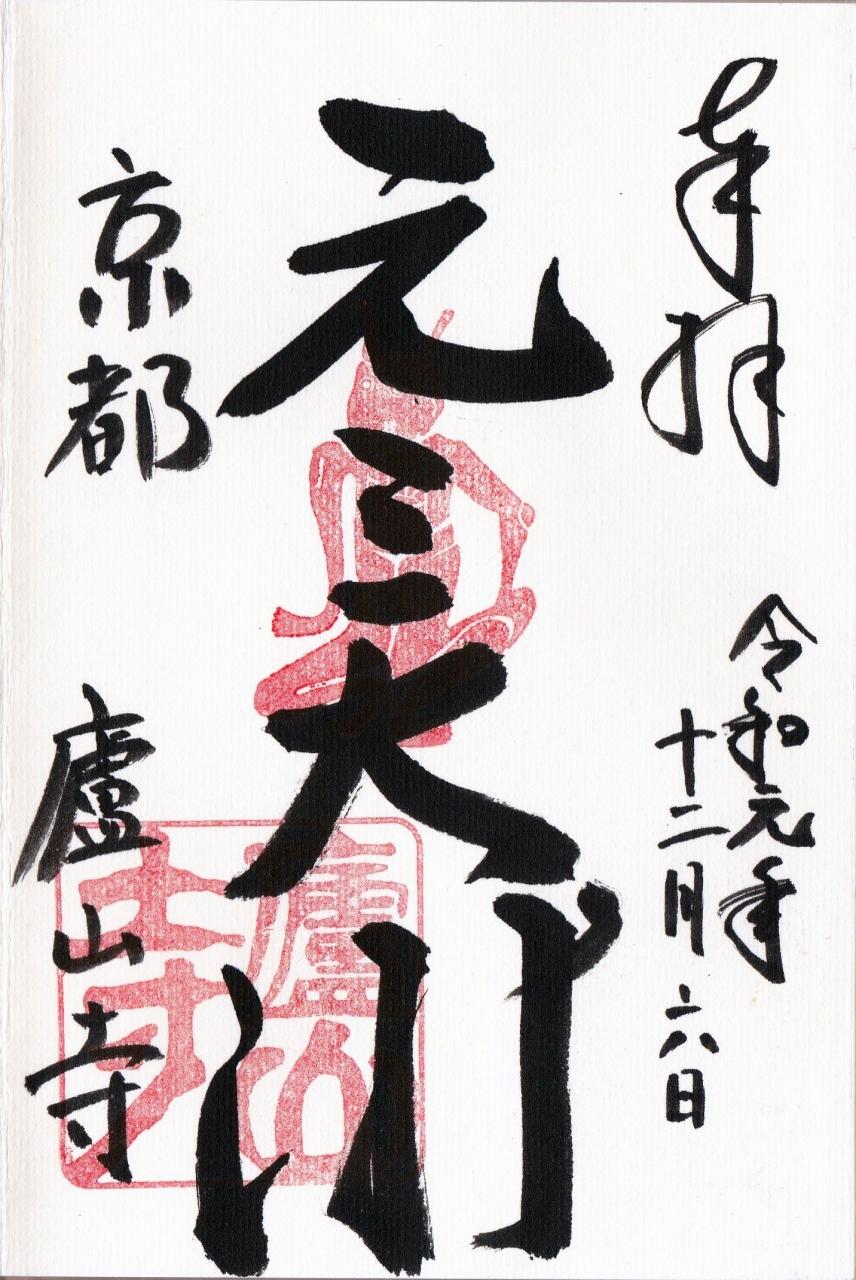 奉拝
令和元年
十二月六日
元三大師
京都 廬山寺
廬山
寺